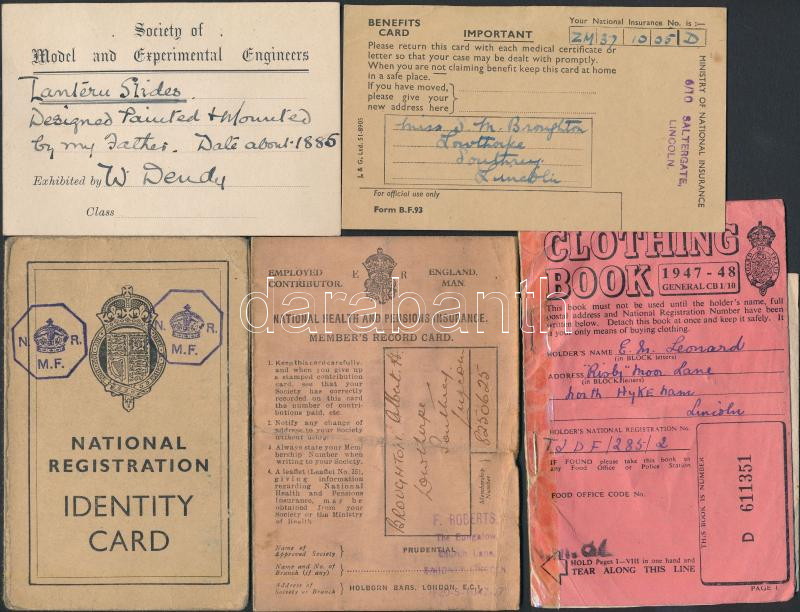 Society of
Model and Experimental Engineers
Lantern Slides
Designed Painted & Mounted
by my Father. Date about 1885
Exhibited by W Dendy
Class
BENEFITS
CARD
IMPORTANT
Your National Insurance No. is :—
ZM 37 10 05 D
Please return this card with each medical certificate or
letter so that your case may be dealt with promptly.
When you are not claiming benefit keep this card at home
in a safe place.
If you have moved,
please give your
new address here
Miss J. M. Broughton
Lowthorpe
Southrey
Lincoln
For official use only
Form B.F.93
J. & G. Ltd. 51-8905
MINISTRY OF NATIONAL INSURANCE
6/10 SALTERGATE,
LINCOLN.
N. R.
M.F.
N. R.
M.F.
NATIONAL
REGISTRATION
IDENTITY
CARD
EMPLOYED
CONTRIBUTOR.
E R
ENGLAND.
MAN.
NATIONAL HEALTH AND PENSIONS INSURANCE.
MEMBER'S RECORD CARD.
1. Keep this card carefully,
and when you give up
a stamped contribution
card, see that your
Society has correctly
recorded on this card
the number of contri-
butions paid, etc.
2. Notify any change of
address to your Society
without delay.
3. Always state your Mem-
bership Number when
writing to your Society.
4. A leaflet (Leaflet No. 35),
giving information
regarding National
Health and Pensions
Insurance, may be
obtained from your
Society or the Ministry
of Health
BROUGHTON Albert H.
Lowthorpe
Southrey
Lincoln
Membership
Number
8250625
F. ROBERTS.
The Bungalow
Name of
Approved Society
PRUDENTIAL
Name and No. of
Branch (if any)
Address of
Society or Branch
HOLBORN BARS, LONDON, E.C.1.
CLOTHING
BOOK
1947-48
GENERAL CB 1/10
This book must not be used until the holder's name, full
postal address and National Registration Number have been
written below. Detach this book at once and keep it safely. It is
your only means of buying clothing.
HOLDER'S NAME E. M. Leonard
(in BLOCK letters)
ADDRESS "Rigby" Moor Lane
(in BLOCK letters)
North Hykeham
Lincoln
HOLDER'S NATIONAL REGISTRATION No.
TJDF/285/2
IF FOUND please take this book to
any Food Office or Police Station
FOOD OFFICE CODE No.
THIS BOOK IS NUMBER
D 611351
HOLD Pages I—VIII in one hand and
TEAR ALONG THIS LINE
PAGE I
darabanth